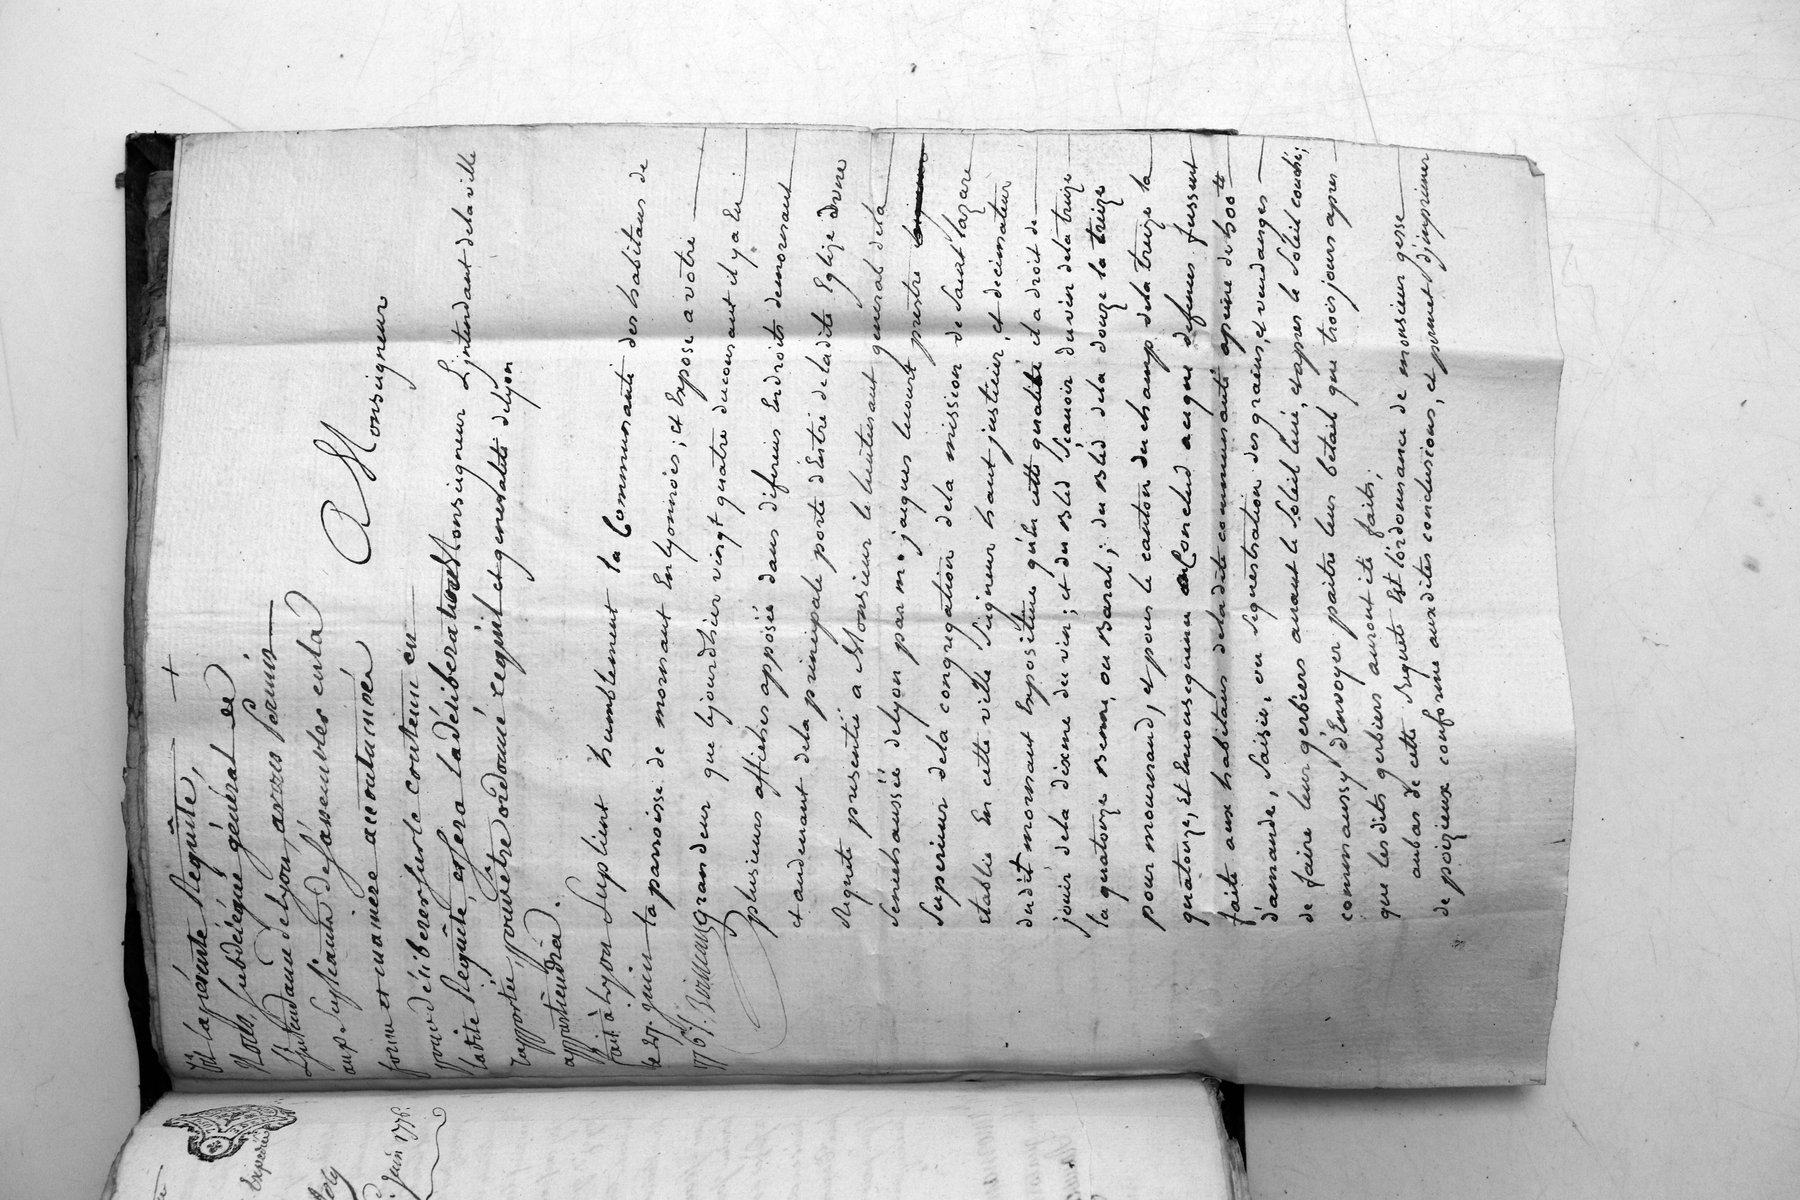 Vû la présente Requête,
Nous subdélégué général de
L'Intendance de Lyon, avons permis
aux supliants de s'assembler en la
forme et maniere accoutumée
pour déliberer sur le contenu en
ladite Requête, et sera la déliberation
rapportée, pour être ordonné ce qu'il
appartiendra.
fait à Lyon
le 27. juin
A Monseigneur
Monseigneur L'intendant de la ville
et generalité de Lyon
Suplient humblement la Communauté des habitans de
la parroisse de mornant En lyonnois; et Expose a votre
grandeur que le jourdhier vingt quatre du courant il y a Eu
plusieurs affiches apposées dans diferens Endroits de mornant
et au devant de la principale porte d'Entrée de ladite Eglise d'une
Requete presentée a Monsieur le lieutenant general de la
Senechaussée de lyon par m.e jacques prestre
Superieur de la congregation de la mission de Saint lazare
Etablie En cette ville Seigneur haut justicier, et decimateur
dudit mornant Expositive qu'En cette qualité il a droit de
jouir de la dixme du vin; et du Bled Scavoir du vin de la treize
la quatorze Benne, ou Baral; du Bled de la douze la treize
pour mournand, et pour le canton du champ de la treize la
quatorze, Et En consequence Conclud a ce que defenses fussent
faite aux habitans de ladite communauté a peine de 500 ₶
d'amande, Saisie, ou sequestration des grains, et vendanges
de faire leur gerbiers avant le Soleil levé, et apres le Soleil couché;
comm'aussy d'Envoyer paitre leur bétail que trois jours apres
que lesdits gerbiers auront eté faits;
au bas de cette Requete Est l'ordonnance de monsieur gesse
de poizieux conforme auxdites conclusions, et permet d'imprimer
Expedié
Juin 1776.